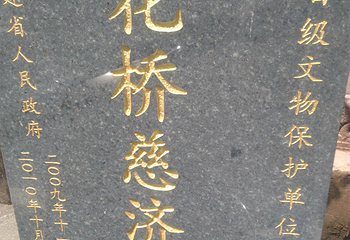 省级文物保护单位
花桥慈济
建省人民政府
二〇〇九年十一
二〇一〇年十月